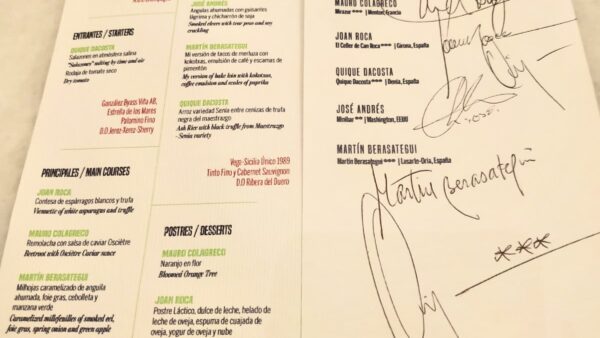 ENTRANTES / STARTERS
QUIQUE DACOSTA
Salazones en atmósfera salina
"Salazones" melting by time and air
Rodaja de tomate seco
Dry tomato
González Byass Viña AB,
Estrella de los Mares
Palomino Fino
D.O Jerez-Xerez-Sherry
PRINCIPALES / MAIN COURSES
JOAN ROCA
Contesa de espárragos blancos y trufa
Viennette of white asparagus and truffle
MAURO COLAGRECO
Remolacha con salsa de caviar Osciètre
Beetroot with Osciètre Caviar sauce
MARTÍN BERASATEGUI
Milhojas caramelizado de anguila
ahumada, foie gras, cebolleta y
manzana verde
Caramelized millefeuilles of smoked eel,
foie gras, spring onion and green apple
JOSÉ ANDRÉS
Angulas ahumadas con guisantes
lágrima y chicharrón de soja
Smoked elvers with tear peas and soy
crackling
MARTÍN BERASATEGUI
Mi versión de tacos de merluza con
kokotxas, emulsión de café y escamas de
pimentón
My version of hake loin with kokotxas,
coffee emulsion and scales of paprika
QUIQUE DACOSTA
Arroz variedad Senia entre cenizas de trufa
negra del maestrazgo
Ash Rice with black truffle from Maestrazgo
- Senia variety
Vega-Sicilia Único 1989
Tinto Fino y Cabernet Sauvignon
D.O Ribera del Duero
POSTRES / DESSERTS
MAURO COLAGRECO
Naranjo en flor
Bloomed Orange Tree
JOAN ROCA
Postre Láctico, dulce de leche, helado
de leche de oveja, espuma de cuajada de
oveja, yogur de oveja y nube
MAURO COLAGRECO
Mirazur *** | Menton, Francia
JOAN ROCA
El Celler de Can Roca *** | Girona, España
QUIQUE DACOSTA
Quique Dacosta *** | Denia, España
JOSÉ ANDRÉS
Minibar ** | Washington, EEUU
MARTÍN BERASATEGUI
Martín Berasategui *** | Lasarte-Oria, España
Martín Berasategui
***